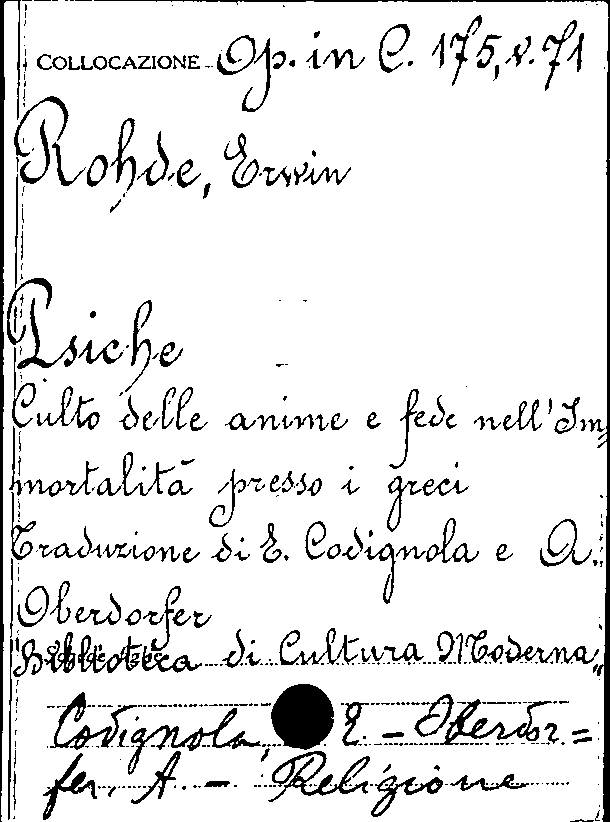 COLLOCAZIONE Op. in C. 175, v. 71
Rohde, Erwin
Psiche
Culto delle anime e fede nell'Im=
mortalità presso i greci
Traduzione di E. Codignola e A.
Oberdorfer
"Biblioteca di Cultura Moderna"
Codignola, E. - Oberdor=
fer, A. - Religione